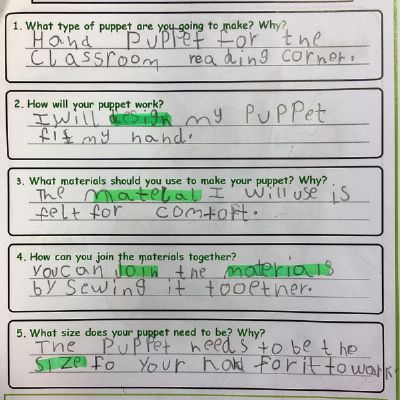 1. What type of puppet are you going to make? Why?
Hand PUPPet for the
Classroom reading corner.
2. How will your puppet work?
I will design my PUPPet
fit my hand.
3. What materials should you use to make your puppet? Why?
The mateial I will use is
felt for comfort.
4. How can you join the materials together?
you can join the materials
by Sewing it together.
5. What size does your puppet need to be? Why?
The PupPet needs to be the
size fo your hand for it to work.